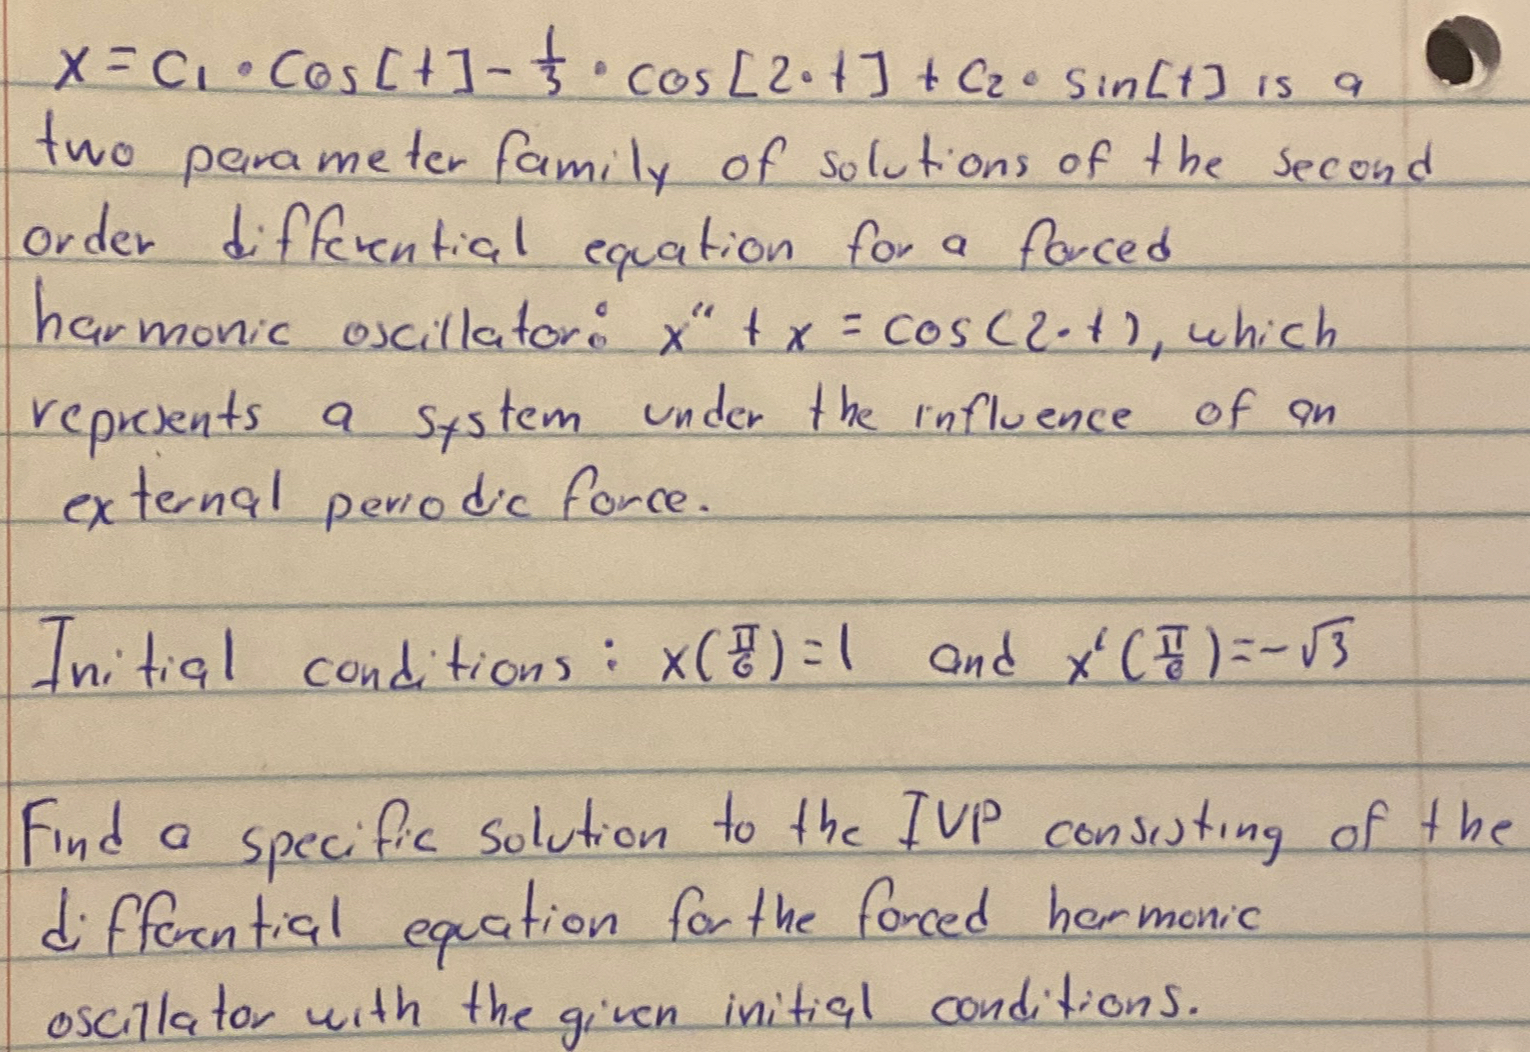 x = C₁ • Cos[t] - 1/3 • cos[2•t] + C₂ • sin[t] is a
two parameter family of solutions of the second
order differential equation for a forced
harmonic oscillator: x" + x = cos(2•t), which
represents a system under the influence of an
external periodic force.
Initial conditions: x(π/6) = 1 and x'(π/6) = -√3
Find a specific solution to the IVP consisting of the
differential equation for the forced harmonic
oscillator with the given initial conditions.